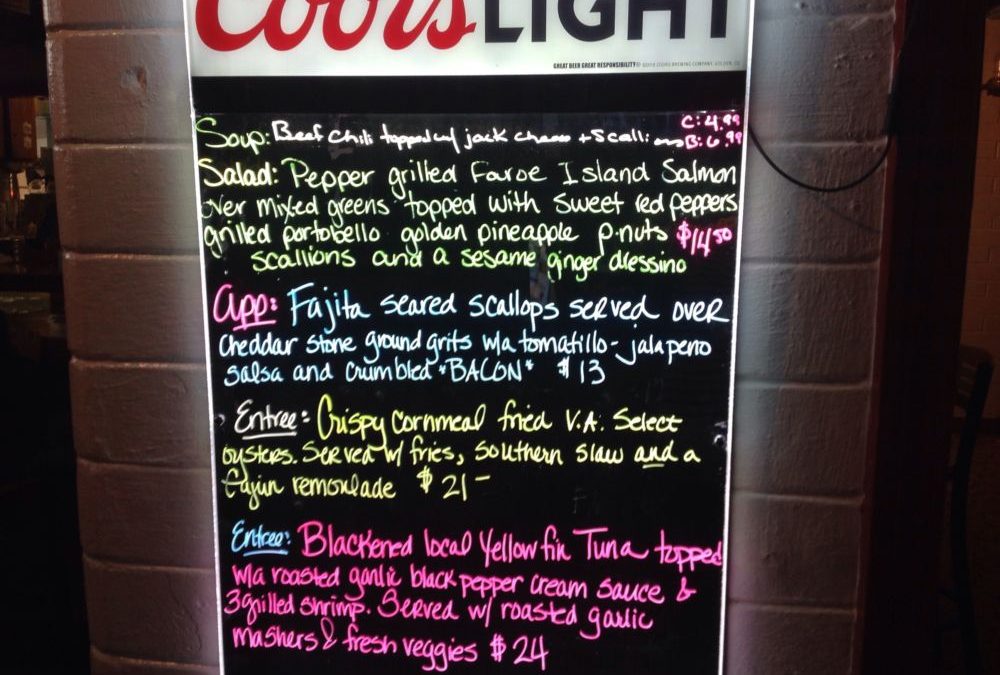 Coors LIGHT
GREAT BEER GREAT RESPONSIBILITY
Soup: Beef Chili topped w/ jack cheese + Scallions C: 4.99
B: 6.99
Salad: Pepper grilled Faroe Island Salmon
over mixed greens topped with sweet red peppers
grilled portobello golden pineapple p.nuts $14.50
scallions and a sesame ginger dressing
App: Fajita seared scallops served over
cheddar stone ground grits w/a tomatillo-jalapeno
salsa and crumbled *BACON* $13
Entree: Crispy cornmeal fried V.A. Select
oysters. Served w/ fries, southern slaw and a
Cajun remoulade $21-
Entree: Blackened local Yellowfin Tuna topped
w/a roasted garlic black pepper cream sauce &
3 grilled shrimp. Served w/ roasted garlic
mashers & fresh veggies $24